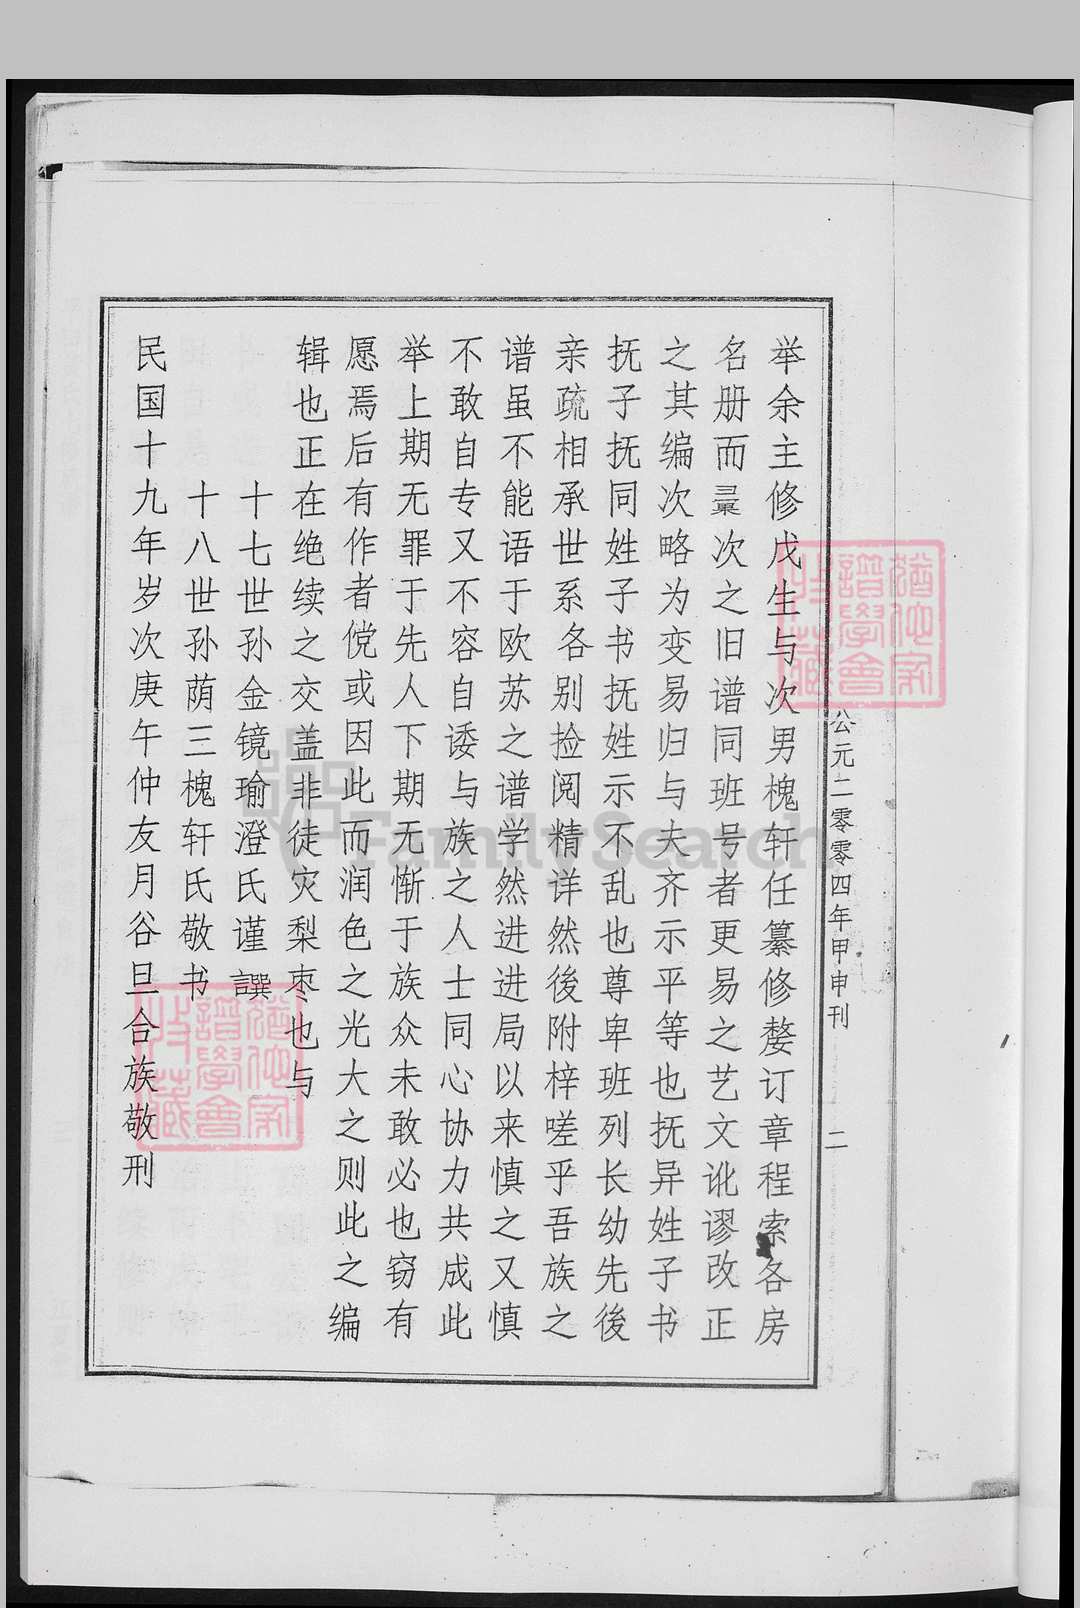 举余主修戊生与次男槐轩任纂修嫠订章程索各房
名册而彚次之旧谱同班号者更易之艺文讹谬改正
之其编次略为变易归与夫齐示平等也抚异姓子书
抚子抚同姓子书抚姓示不乱也尊卑班列长幼先後
亲疏相承世系各别捡阅精详然後附梓嗟乎吾族之
谱虽不能语于欧苏之谱学然进进局以来慎之又慎
不敢自专又不容自诿与族之人士同心协力共成此
举上期无罪于先人下期无惭于族众未敢必也窃有
愿焉后有作者傥或因此而润色之光大之则此之编
辑也正在绝续之交盖非徒灾梨枣也与
十七世孙金镜瑜澄氏谨譔
十八世孙荫三槐轩氏敬书
民国十九年岁次庚午仲友月谷旦合族敬刊
公元二零零四年甲申刊
二
猶他家
譜學會
收藏
猶他家
譜學會
收藏
FamilySearch